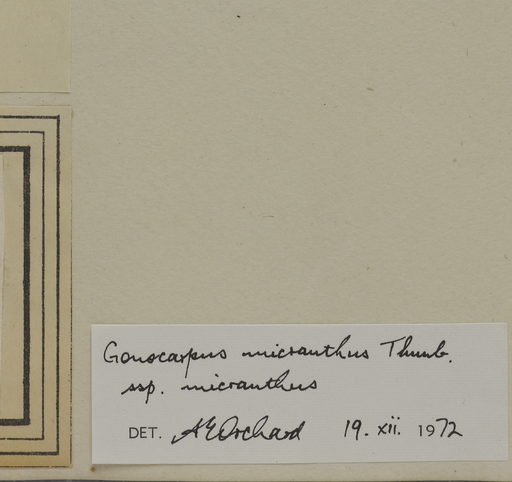 Gonocarpus micranthus Thunb.
ssp. micranthus
DET. AEOrchard 19. xii. 1972